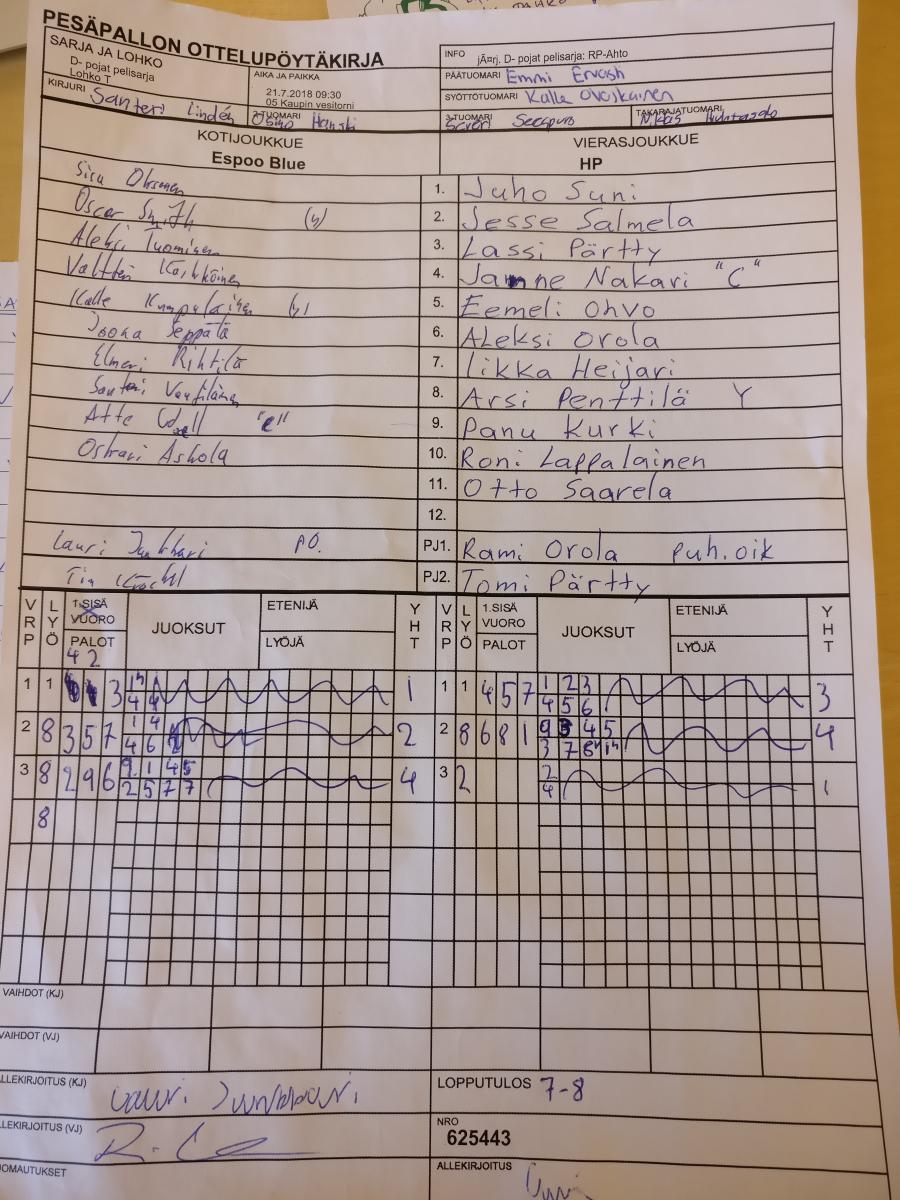 PESÄPALLON OTTELUPÖYTÄKIRJA
SARJA JA LOHKO
D- pojat pelisarja
Lohko T
AIKA JA PAIKKA
21.7.2018 09:30
05 Kaupin vesitorni
INFO jÃ¤rj. D- pojat pelisarja: RP-Ahto
PÄÄTUOMARI Emmi
SYÖTTÖTUOMARI Kalle
KIRJURI Santeri Lindén
2-TUOMARI
3-TUOMARI
TAKARAJATUOMARI
KOTIJOUKKUE
Espoo Blue
VIERASJOUKKUE
HP
Sisu
1. Juho Suni
Oscar Smith (y)
2. Jesse Salmela
Aleksi Tuominen
3. Lassi Pärtty
Valtteri
4. Janne Nakari "C"
Kalle Kumpulainen (y)
5. Eemeli Ohvo
Joona Seppälä
6. Aleksi Orola
Elmeri Rihtilä
7. Iikka Heijari
Santeri
8. Arsi Penttilä Y
Atte "C"
9. Panu Kurki
Oskari Askola
10. Roni Lappalainen
11. Otto Saarela
12.
Lauri PO.
PJ1. Rami Orola puh.oik
PJ2. Tomi Pärtty
VRP LYÖ 1.SISÄ VUORO PALOT JUOKSUT ETENIJÄ LYÖJÄ YHT
VRP LYÖ 1.SISÄ VUORO PALOT JUOKSUT ETENIJÄ LYÖJÄ YHT
4 2
1 1 3 1 1 1 4 5 7 1 2 3 3
4 4 4 5 6
2 8 3 5 7 1 4 2 2 8 6 8 1 9 3 4 5 4
4 6 3 7 8 1
3 8 2 9 6 9 1 4 5 4 3 2 2 1
2 5 7 7 4
8
VAIHDOT (KJ)
VAIHDOT (VJ)
ALLEKIRJOITUS (KJ) Lauri
LOPPUTULOS 7-8
ALLEKIRJOITUS (VJ)
NRO
625443
HUOMAUTUKSET
ALLEKIRJOITUS